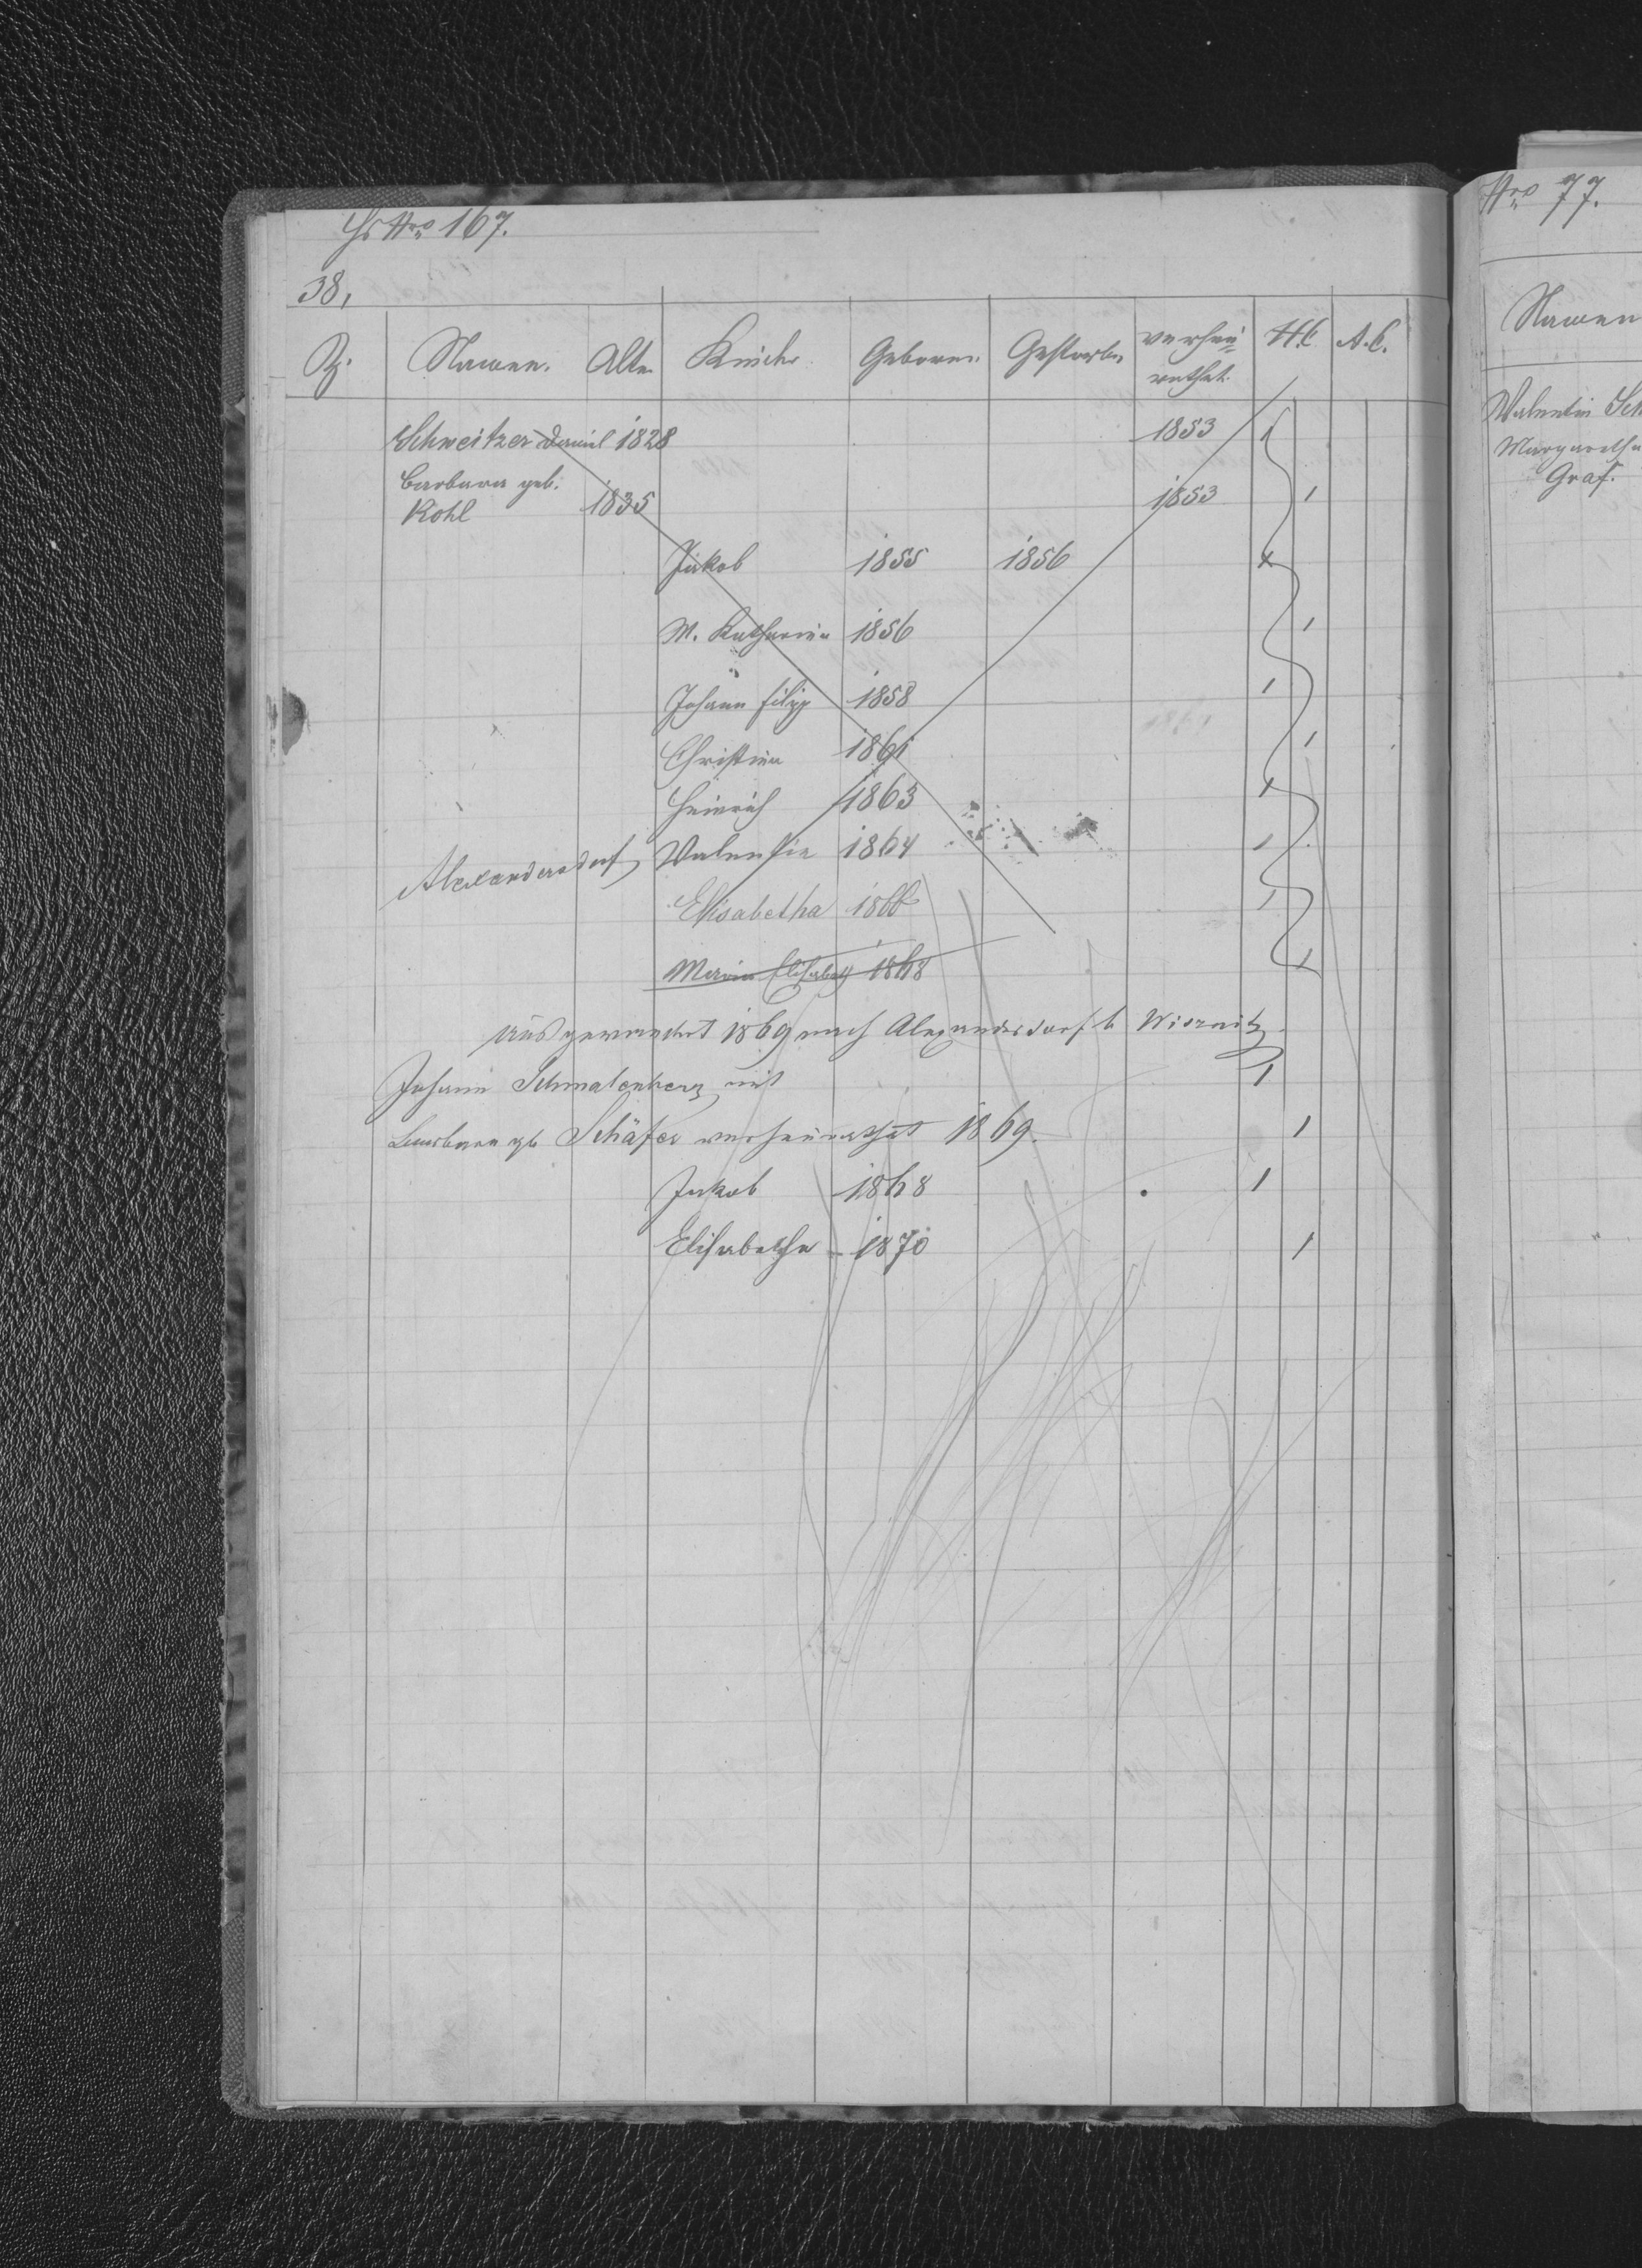 Hs Nro 167.
38,
Z. Namen. Alter Kinder Geboren. Gestorben verhei=
rathet. H.C. A.C.
Schweitzer Daniel 1828 1853
Barbara geb.
Kohl 1835 1853
Jakob 1855 1856
M. Katharina 1856
Johann Filipp 1858
Christina 1861
Heinrich 1863
Alexandersdorf Valentin 1864
Elisabetha 1866
Maria Elisabeth 1868
ausgewandert 1869 nach Alexandersdorf b Wisznitz
Johann Schmalenberg mit
Barbara gb Schäfer verheurathet 1869.
Jakob 1868
Elisabetha - 1870
Nro 77.
Namen
Valentin Sch
Margaretha
Graf.